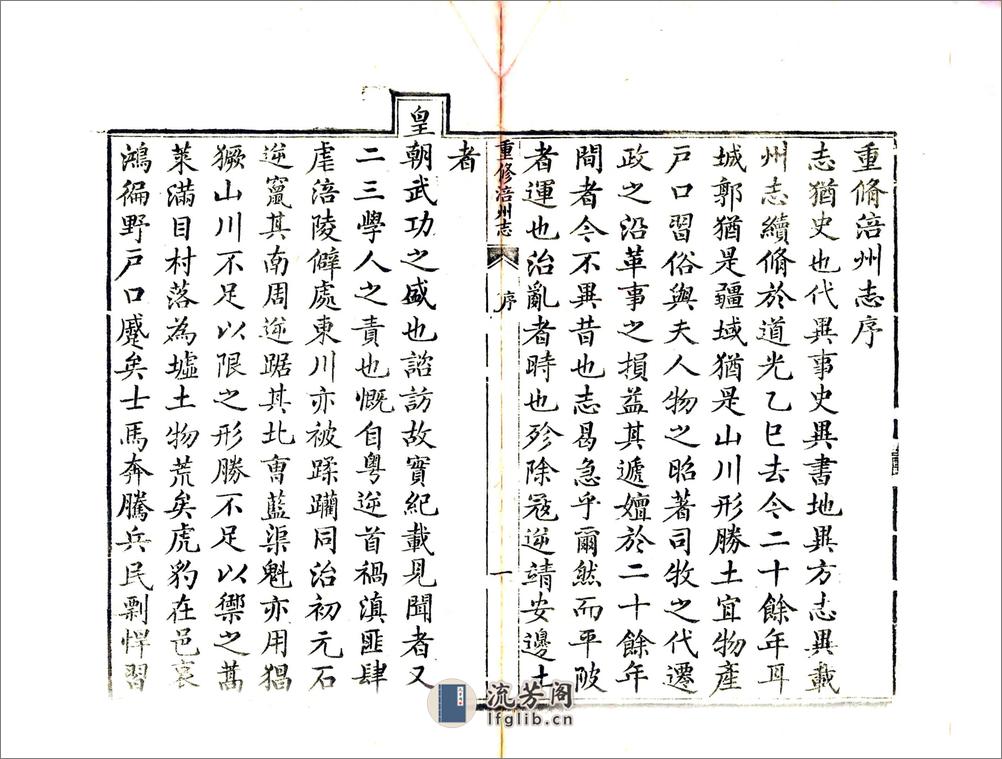 重脩涪州志序
志猶史也代異事史異書地異方志異載
州志續脩於道光乙巳去今二十餘年耳
城郭猶是疆域猶是山川形勝土宜物產
戶口習俗與夫人物之昭著司牧之代遷
政之沿革事之損益其遞嬗於二十餘年
間者今不異昔也志曷急乎爾然而平陂
者運也治亂者時也殄除寇逆靖安邊土
重修涪州志 序 一
者
皇朝武功之盛也諮訪故實紀載見聞者又
二三學人之責也慨自粵逆首禍滇匪肆
虐涪陵僻處東川亦被蹂躪同治初元石
逆竄其南周逆踞其北曹藍渠魁亦用猖
獗山川不足以限之形勝不足以禦之蒿
萊滿目村落為墟土物荒矣虎豹在邑哀
鴻徧野戶口蹙矣士馬奔騰兵民剽悍習
流芳阁
lfglib.cn